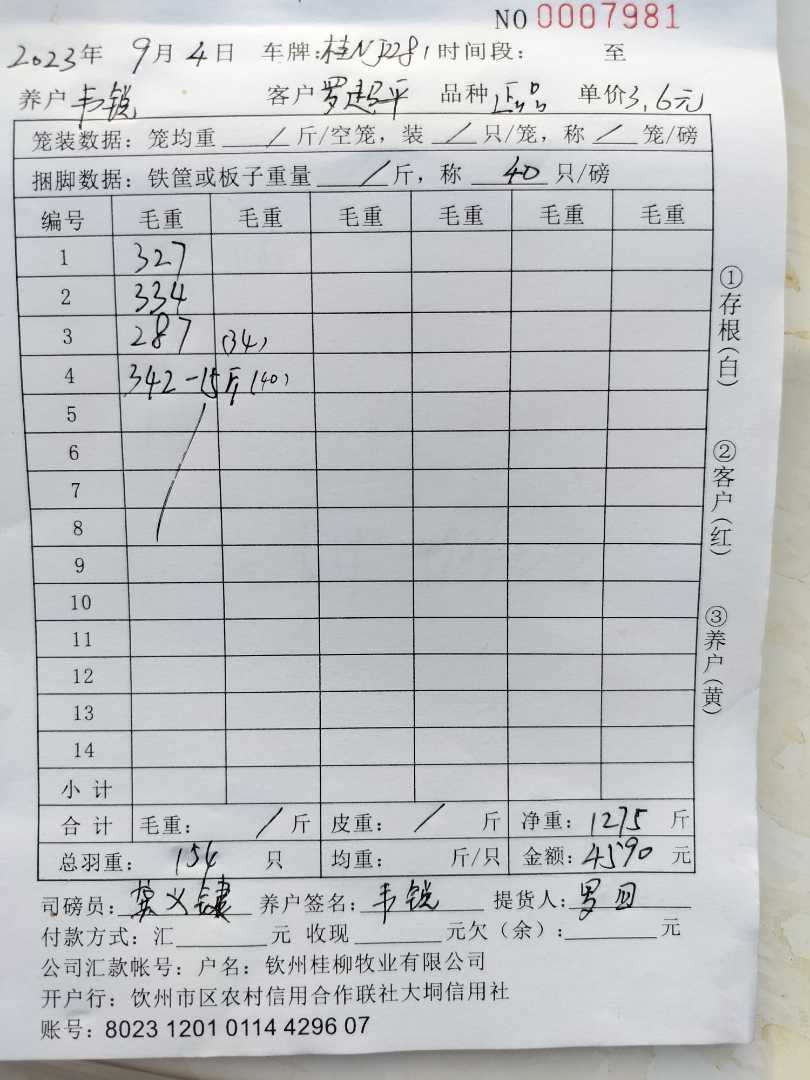 NO 0007981
2023年 9月4日 车牌:桂NJ2281 时间段: 至
养户 韦锐 客户 罗超平 品种 正品 单价3.6元
笼装数据: 笼均重 / 斤/空笼, 装 / 只/笼, 称 / 笼/磅
捆脚数据: 铁筐或板子重量 / 斤, 称 40 只/磅
编号 毛重 毛重 毛重 毛重 毛重 毛重
1 327
2 334
3 287 (34)
4 342-15斤(40)
5
6
7
8
9
10
11
12
13
14
小计
合计 毛重: / 斤 皮重: / 斤 净重: 1275 斤
总羽重: 154 只 均重: 斤/只 金额: 4590 元
司磅员: 养户签名: 韦锐 提货人: 罗
付款方式: 汇 元 收现 元欠(余): 元
公司汇款帐号: 户名: 钦州桂柳牧业有限公司
开户行: 饮州市区农村信用合作联社大垌信用社
账号: 8023 1201 0114 4296 07
①存根(白)
②客户(红)
③养户(黄)